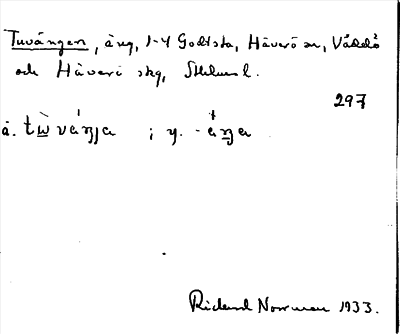 Tuvängen, äng, 1-4 Godsta, Häverö sn, Väddö
och Häverö skg, Sthlms l.
297
å. tẁváŋa ; y. -áŋa
Rickard Norrman 1933.